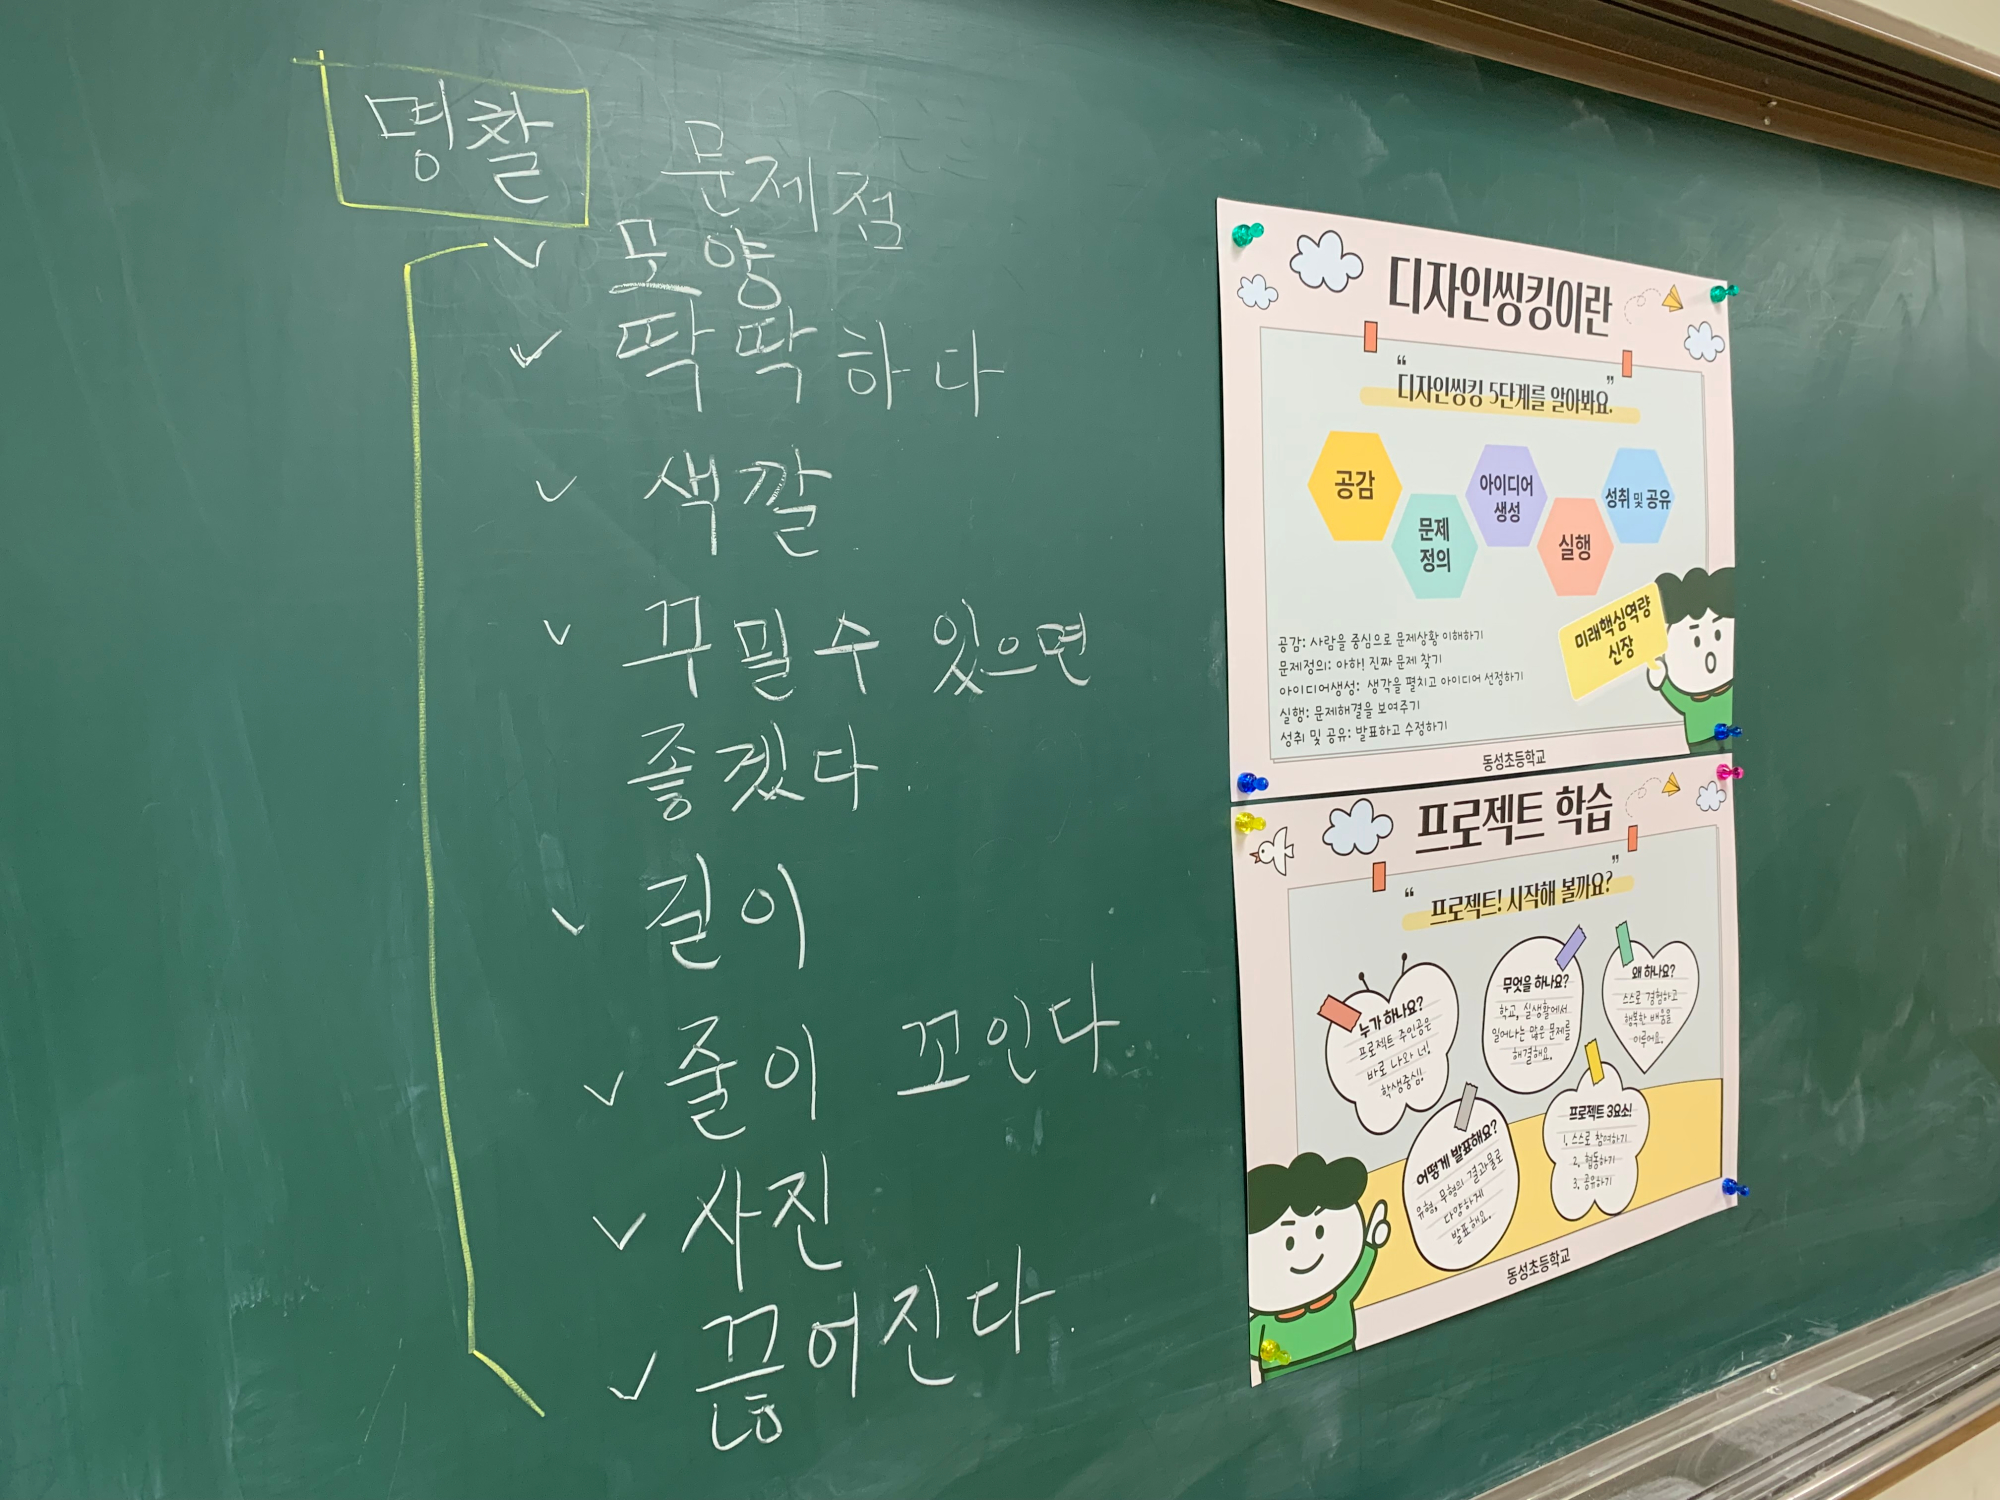 명찰
문제점
✓ 모양
✓ 딱딱하다
✓ 색깔
✓ 꾸밀수 있으면
좋겠다.
✓ 길이
✓ 줄이 꼬인다.
✓ 사진
✓ 끊어진다.
디자인씽킹이란
“디자인씽킹 5단계를 알아봐요.”
공감
문제
정의
아이디어
생성
실행
성취 및 공유
미래핵심역량
신장
공감: 사람을 중심으로 문제상황 이해하기
문제정의: 아하! 진짜 문제 찾기
아이디어생성: 생각을 펼치고 아이디어 선정하기
실행: 문제해결을 보여주기
성취 및 공유: 발표하고 수정하기
동성초등학교
프로젝트 학습
“프로젝트! 시작해 볼까요?”
누가 하나요?
프로젝트 주인공은
바로 나와 너!
학생중심!
무엇을 하나요?
학교, 실생활에서
일어나는 많은 문제를
해결해요.
왜 하나요?
스스로 경험하고
행복한 배움을
이루어요.
어떻게 발표해요?
유형, 무형의 결과물로
다양하게
발표해요.
프로젝트 3요소!
1. 스스로 참여하기
2. 협동하기
3. 공유하기
동성초등학교